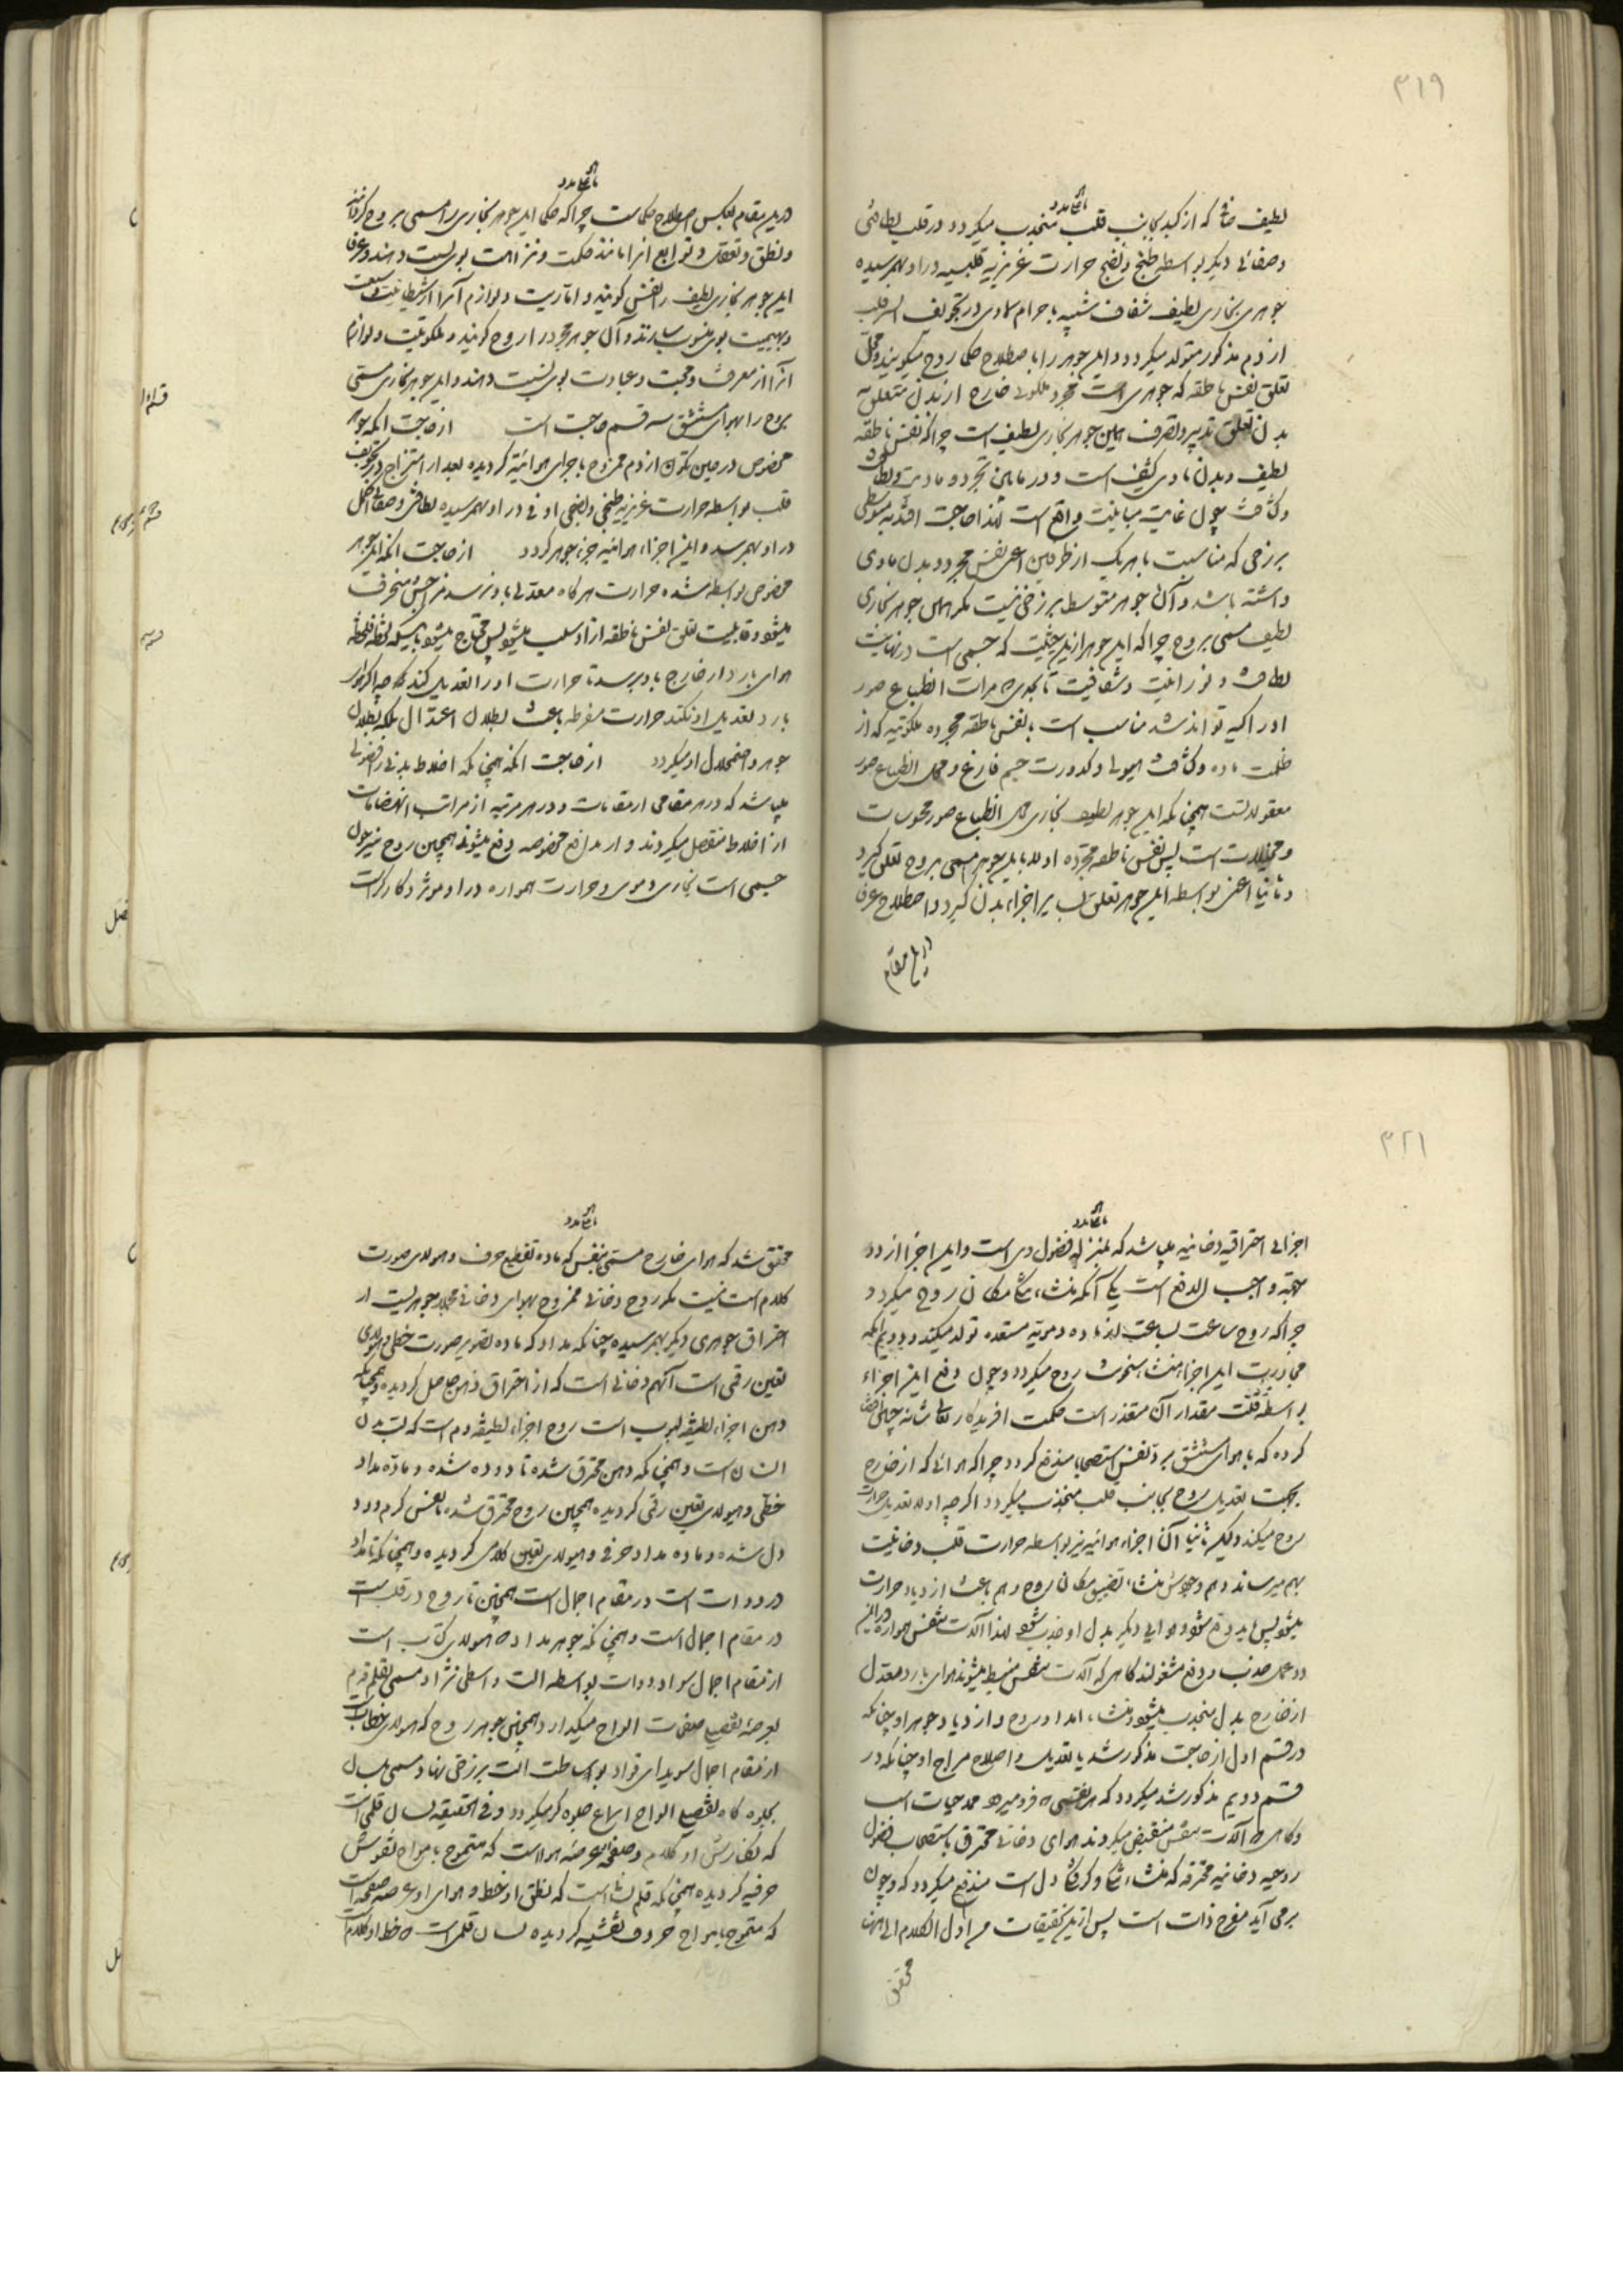 ۳۱۹
لطیف صافی که از کبد بجانب قلب منجذب میکردد و در قلب لطافتی
و صفائی دیکر بواسطه طبخ و نضج حرارت غریزیه قلبیه در او بهمرسیده
جوهری بخاری لطیف شفاف شبیه باجرام سماوی در تجویف ایسر قلب
از دم مذکور متولد میکردد و این جوهر را باصطلاح حکما روح میکویند و محل
تعلق نفس ناطقه که جوهری است مجرد ملکوتی خارج از بدن متعلق به
بدن تعلق تدبیر و تصرف همین جوهر بخاری لطیف است چرا که نفس ناطقه
لطیف و بدن مادی کثیف است و در مابین تجرد و مادیت و لطافت
و کثافت چون غایت مباینت واقع است لهذا حاجت افتد به متوسطی
برزخی که مناسبت با هریک از طرفین اعنی نفس مجرد و بدن مادی
داشته باشد و آن جوهر متوسط برزخی نیست مکر همین جوهر بخاری
لطیف مسمی بروح چرا که این جوهر ازین حیثیت که جسمی است در نهایت
لطافت و نورانیت و شفافیت تا بحدی که مرآت انطباع صور
ادراکیه تواند شد مناسب است با نفس ناطقه مجرده ملکوتیه که از
ظلمت ماده و کثافت هیولی و کدورت جسم فارغ و محل انطباع صور
معقولاتست همچنانکه این جوهر لطیف بخاری محل انطباع صور محسوسات
و مخیلات است پس نفس ناطقه مجرده اولا باین جوهر مسمی بروح تعلق کیرد
و ثانیا اعنی بواسطه این جوهر تعلق بسایر اجزاء بدن کیرد و اصطلاح عرفا
در این مقام
در این مقام بعکس اصطلاح حکماست چرا که حکما این جوهر بخاری را مسمی بروح کردانند
و نطق و تعقل و توابع انرا مانند حکمت و نزاهت بوی نسبت دهند و عرفا
این جوهر بخاری لطیف را نفس کویند و اماریت و لوازم آنرا از شیطانیت و سبعیت
و بهیمیت بوی منسوب سازند و آن جوهر مجرد را روح کویند و ملکوتیت و لوازم
آنرا از معرفت و محبت و عبادت بوی نسبت دهند و این جوهر بخاری مسمی
بروح را بهوای مستنشق سه قسم حاجت است از حاجت آنکه جوهر
مخصوص در حین تکون از دم ممزوج باجزای هوائیه کردیده بعد از امتزاج در تجویف
قلب بواسطه حرارت غریزیه طبخی و نضجی اوفی در او بهمرسیده لطافتی و صفائی اکمل
در او بهمرسد و این اجزاء هوائیه جزء جوهر کردد از حاجت آنکه این جوهر
مخصوص بواسطه شدت حرارت هرکاه معدلی باو نرسد مزاجش منحرف
میشود و قابلیت تعلق نفس ناطقه از او سلب میشود پس محتاج میشود باینکه لحظه فلحظه
هوای بارد از خارج باو برسد تا حرارت او را تعدیل کند که چه اکر هوای
بارد تعدیل او نکند حرارت مفرطه باعث بطلان اعتدال بلکه بطلان
جوهر و اضمحلال او میکردد از حاجت آنکه همچنانکه اخلاط بدنی را فضولی
میباشد که در هر مقامی از مقامات و در هر مرتبه از مراتب انهضامات
از اخلاط منفصل میکردند و از مدافع مخصوصه دفع میشوند همچنین روح نیز چون
جسمی است بخاری دموی و حرارت همواره در او موثر و کارکر است
۳۲۱
اجزائی احتراقیه دخانیه میباشد که بمنزله فضول وی است و این اجزا از دو
جهة واجب الدفع است یکی آنکه منشاء تنکی مکان روح میکردد
چرا که روح ساعت بساعت از ماده دمویه مستعده تولد میکند و دویم آنکه
مجاورت این اجزاء منشاء سخونت روح میکردد و چون دفع این اجزاء
بواسطه قلت مقدار آن متعذر است حکمت آفریدکار تعالی شانه چنین
کرده که با هوای مستنشق برد نفس استصحابا مندفع کردد چرا که هوائی که از خارج
بجهت تعدیل روح بجانب قلب منجذب میکردد اکرچه اولا تعدیل حرارت
روح میکند ولیکن ثانیا آن اجزاء هوائیه نیز بواسطه حرارت قلب دخانیت
بهم میرساند و هم وجودش منشاء تضییق مکان روح و هم باعث ازدیاد حرارت
میشود پس باید دفع شود و هوایی دیکر بدل او جذب شود لهذا آلات تنفس همواره در این
دو عمل جذب و دفع مشغولند کاهی که آلات تنفس منبسط میشوند هوای بارد معتدل
از خارج بدل منجذب میشود و منشاء امداد روح و ازدیاد جوهر او چنانکه
در قسم اول از حاجت مذکور شد یا تعدیل و اصلاح مزاج او چنانکه در
قسم دویم مذکور شد میکردد که هر نفسی که فرو میرود ممد حیات است
و کاهی که آلات تنفس منقبض میکردند هوای دخانی محترق باستصحاب فضول
روحیه دخانیه محترقه که منشاء تنکی و کرفتکی دل است مندفع میکردد که و چون
برمی آید مفرح ذات است پس ازین تحقیقات من اول الکلام الی هنا
محقق
محقق شد که هوای خارج مسمی بنفس که ماده تقطیع حرف و هیولای صورت
کلام است نیست مکر روح دخانی ممزوج بهوای دخانی همچو جوهریست از
احتراق جوهری دیکر بهمرسیده چنانکه مداد که ماده تصویر صورت خطی و هیولای
تعین رقمی است آنهم دخانی است که از احتراق دهن حاصل کردیده و همچنانکه
دهن اجزاء لطیفه لبوب است روح اجزاء لطیفه دم است که لب بدن
انسان است و همچنانکه دهن محترق شده تا دوده شده و ماده مداد
خطی و هیولای تعین رقمی کردیده همچنین روح محترق شده تا نفس کرم و دود
دل شده و ماده مداد حرفی و هیولای تعین کلامی کردیده و همچنانکه تا مداد
در دوات است در مقام اجمال است همچنین تا روح در قلب است
در مقام اجمال است و همچنانکه جوهر مداد که هیولای کتاب است
از مقام اجمال سواد دوات بواسطه آلت واسطی نژاد مسمی بقلم قدم
بعرصه تفصیل صفحات الواح میکذارد همچنین جوهر روح که هیولای خطابست
از مقام اجمال سویدای فواد بوساطت آلت برزخی نهاد مسمی بلسان
بجلوه کاه تفصیل الواح اسماع جلوه کر میکردد و فی الحقیقه لسان قلمی است
که نکارش او کلام و صفحه عرصه هوا است که متموج بامواج نقوش
حرفیه کردیده همچنانکه قلم لسانست که نطق او خط و هوای او عرصه صفحه است
که متموج بامواج حروف نقشیه کردیده لسان قلمی است که خط او کلام است